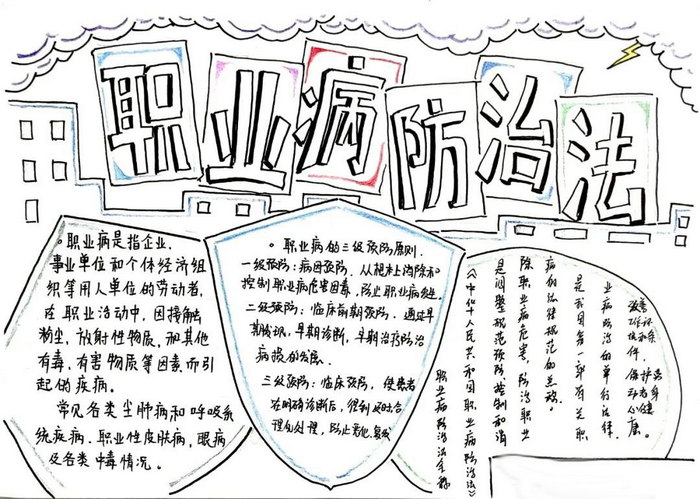 职业病防治法
。职业病是指企业、
事业单位和个体经济组
织等用人单位的劳动者,
在职业活动中,因接触
粉尘,放射性物质,和其他
有毒,有害物质等因素而引
起的疾病。
常见各类尘肺病和呼吸系
统疾病、职业性皮肤病,眼病
及各类中毒情况。
。职业病的三级预防原则.
一级预防:病因预防. 从根本上消除和
控制职业病危害因素,防止职业病发生.
二级预防:临床前期预防. 通过早
期检测,早期诊断,早期治疗防治
病损的发展.
三级预防:临床预防,使患者
在明确诊断后,得到及时合
理的处理,防止恶化、复发
职业病防治法全称
《中华人民共和国职业病防治法》
是调整规范预防控制和消
除职业病危害,防治职业
病的法律规范的总称。
是我国第一部有关职
业病防治的单行法律,
工作环
条
件,
保护
身
心健
康。